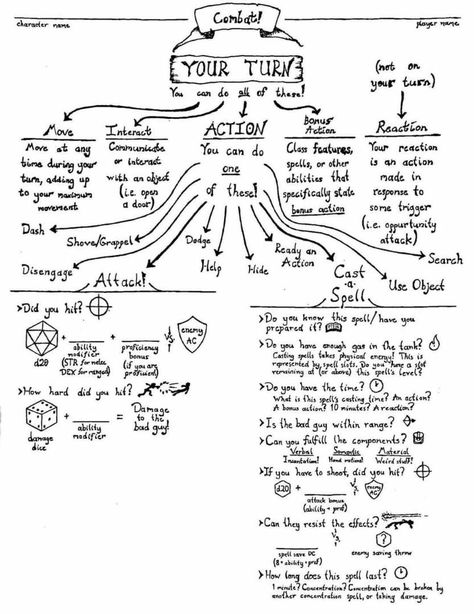 character name
Combat!
player name
YOUR TURN
You can do all of these!
(not on
your turn)
Move
Move at any
time during your
turn, adding up
to your maximum
movement
Interact
Communicate
or interact
with an object
(i.e. open
a door)
ACTION
You can do
one
of these!
Bonus
Action
Class features,
spells, or other
abilities that
specifically state
bonus action
Reaction
Your reaction
is an action
made in
response to
some trigger
(i.e. oppurtunity
attack)
Dash
Shove/Grappel
Disengage
Dodge
Help
Hide
Ready an
Action
Search
Use Object
Attack!
>Did you hit?
d20
+
ability
modifier
(STR for melee
DEX for ranged)
+
proficiency
bonus
(if you are
proficient)
vs
enemy
AC
>How hard did you hit?
damage
dice
+
ability
modifier
=
Damage
to the
bad guy!
Cast
-a-
Spell
>Do you know this spell/have you
prepared it?
>Do you have enough gas in the tank?
Casting spells takes physical energy! This is
represented by spell slots. Do you have a slot
remaining at (or above) this spell's level?
>Do you have the time?
What is this spell's casting time? An action?
A bonus action? 10 minutes? A reaction?
>Is the bad guy within range?
>Can you fulfill the components?
Verbal Somatic Material
Incantation! Hand motions! Weird stuff!
>If you have to shoot, did you hit?
d20
+
attack bonus
(ability + prof)
vs
enemy
AC
>Can they resist the effects?
spell save DC
(8+ability+prof)
vs
?
enemy saving throw
>How long does this spell last?
1 minute? Concentration? Concentration can be broken by
another concentration spell, or taking damage.